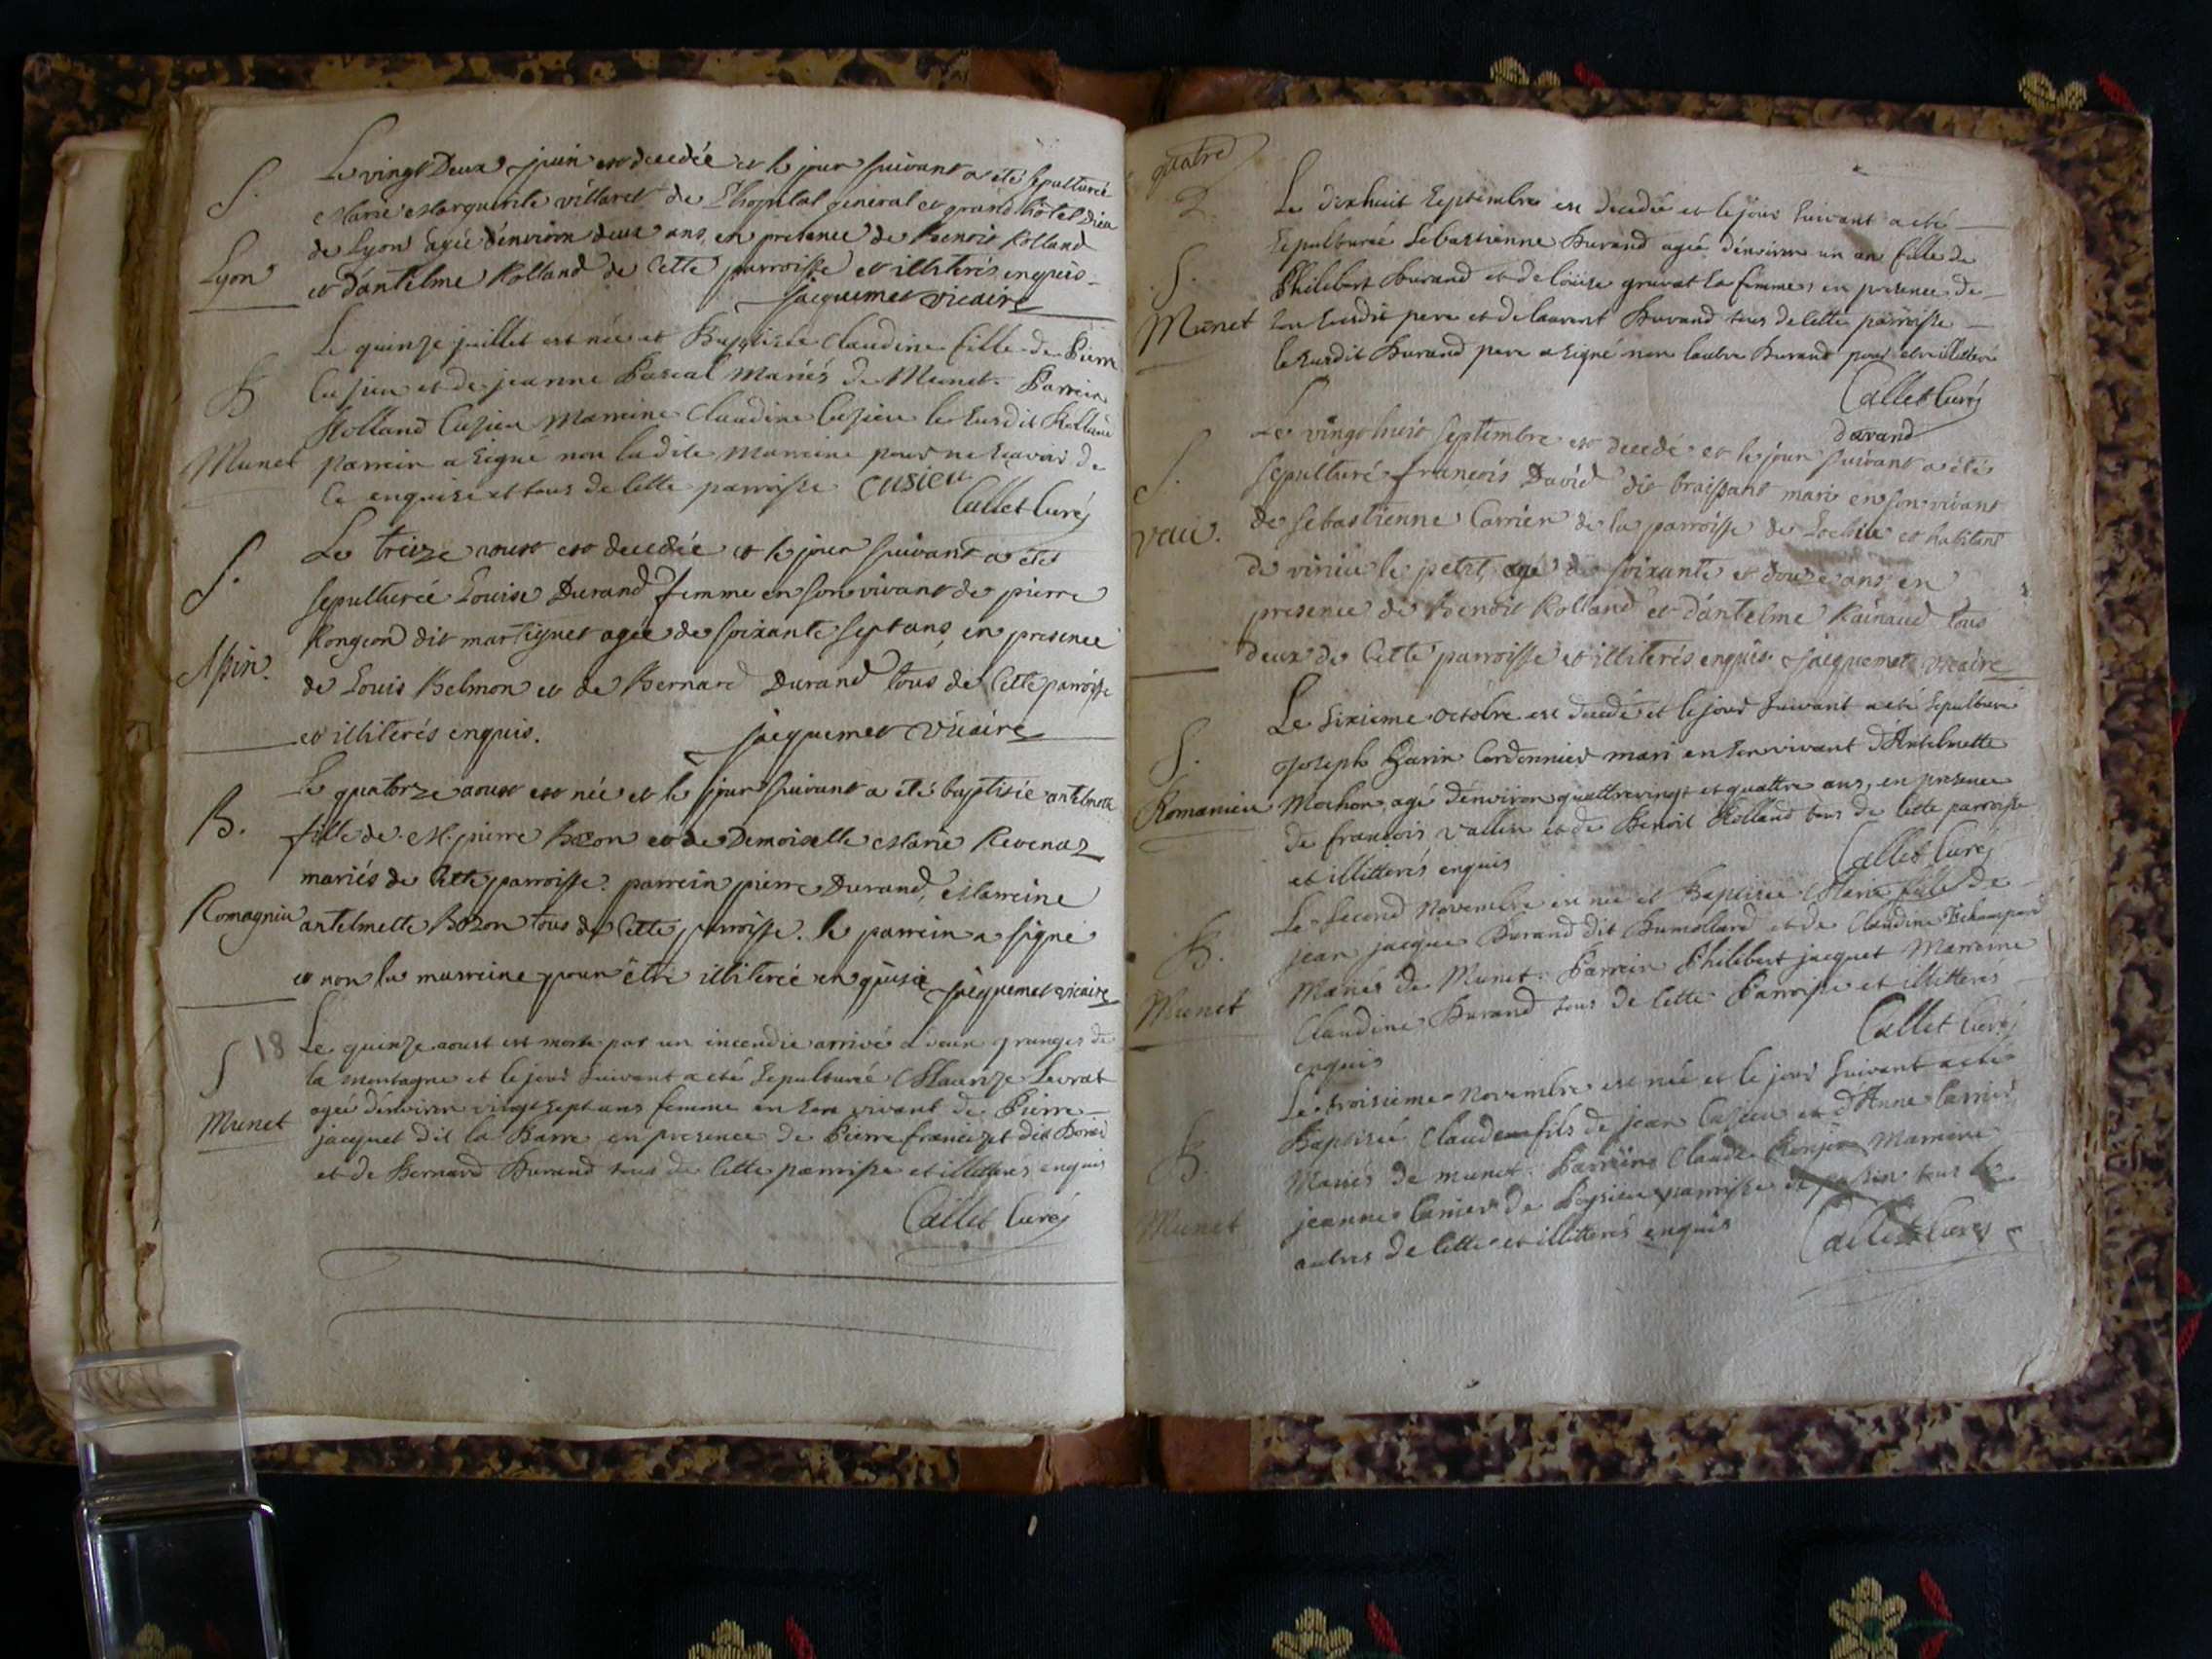 S.
Le vingt Deux juin est decedée et le jour suivant a été sepulturée
Marie Marguerite villaret de L'hopital general et grand hôtel Dieu
de Lyon agée d'environ deux ans, en presence de Benoit Rolland
Lyon
et d'antelme Rolland de Cette parroisse et illiterés enquis
Jacquemet vicaire
Le quinze juillet est née et Baptisée Claudine fille de Pierre
B
Cusieu et de jeanne Pascal Mariés de Munet. Parrein
Rolland Cusieu Marreine Claudine Cusieu le susdit Rolland
Munet
parrein a signé non ladite Marreine pour ne sçavoir de
ce enquise et tous de Cette parroisse cusieu
Callet Curé
S.
Le treize aoust est decedée et le jour suivant a été
sepulturée Louise Durand femme en son vivant de pierre
Rongeon dit martignet agée de soixante sept ans, en presence
Assin.
de Louis Belmon et de Bernard Durand tous de Cette parroisse
et illiterés enquis. Jacquemet Vicaire
Le quatorze aoust est née et le jour suivant a été baptisée antelmette
B.
fille de M. pierre Bozon et de Demoiselle Marie Revenaz
mariés de Cette parroisse. parrein pierre Durand, Marreine
Romagnieu
antelmette Bozon tous de Cette parroisse. le parrein a signé
et non la marreine pour être illiterée enquise Jacquemet vicaire
18
Le quinze aoust est morte par un incendie arrivé a deux granges de
S
la montagne et le jour suivant a été sepulturée Levrat
Munet
agée d'environ vingt sept ans femme en son vivant de Pierre
jacquet dit la Barre en presence de Pierre francizet dit
et de Bernard Durand tous de Cette parroisse et illitterés enquis
Callet Curé
quatre
2
Le dixhuit Septembre est decedée et le jour suivant a été
Sepulturée Sebastienne Durand agée d'environ un an fille de
S.
Philibert Durand et de loüise gruvat sa femme, en presence de
Munet
son susdit pere et de laurent Durand tous de Cette parroisse
le susdit Durand pere a signé non l'autre Durand pour etre illitteré
Callet Curé
durand
Le vingt huit septembre est decedé et le jour suivant a été
S.
sepulturé françois David dit braissant mari en son vivant
vaii.
de sebastienne Carrier de la parroisse de Lochieu et habitant
de virieu le petit, agé de soixante et douze ans en
presence de Benoit Rolland et d'antelme Rainaud tous
deux de Cette parroisse et illiterés enquis Jacquemet vicaire
Le sixieme octobre est decedé et le jour suivant a été sepulturé
S.
Joseph Cordonnier mari en son vivant d'Antelmette
Romanieu
Mochon, agé d'environ quattrevingt et quattre ans, en presence
de françois Vallin et de Benoit Rolland tous de Cette parroisse
et illitterés enquis Callet Curé
Le Second Novembre est née et Baptisée Marie fille de
B.
jean jacque Durand dit Dumollard et de Claudine
Munet
Mariés de Munet. Parrein Philibert jacquet Marreine
Claudine Durand tous de Cette Parroisse et illitterés
enquis Callet Curé
Le troisieme Novembre est née et le jour suivant a été
B.
Baptisé Claude fils de jean Cusieu et d'Anne Carrier
Mariés de munet. Parrein Claude Marreine
Munet
jeanne Carrier de Poysieu parroisse de passin tous les
autres de Cette et illitterés enquis Callet Curé